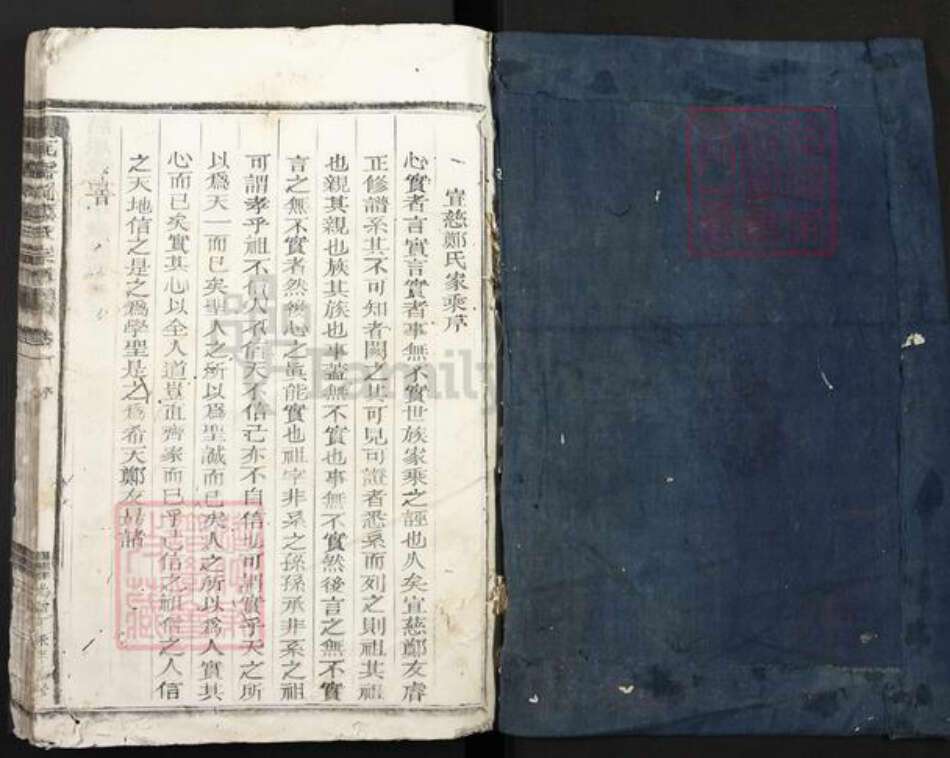 宣慈鄭氏家乘序
心實者言實言實者事無不實世族家乘之誣也久矣宣慈鄭友睿
正修譜系其不可知者闕之其可見可證者悉系而列之則祖其祖
也親其親也族其族也事蓋無不實也事無不實然後言之無不實
言之無不實者然後心之眞能實也祖字非系之孫孫承非系之祖
可謂孝乎祖不信人不信天不信己亦不自信也可謂實乎天之所
以爲天一而已矣聖人之所以爲聖誠而已矣人之所以爲人實其
心而已矣實其心以全人道豈直齊家而已乎己信之祖信之人信
之天地信之是之爲學聖是之爲希天鄭友易諸